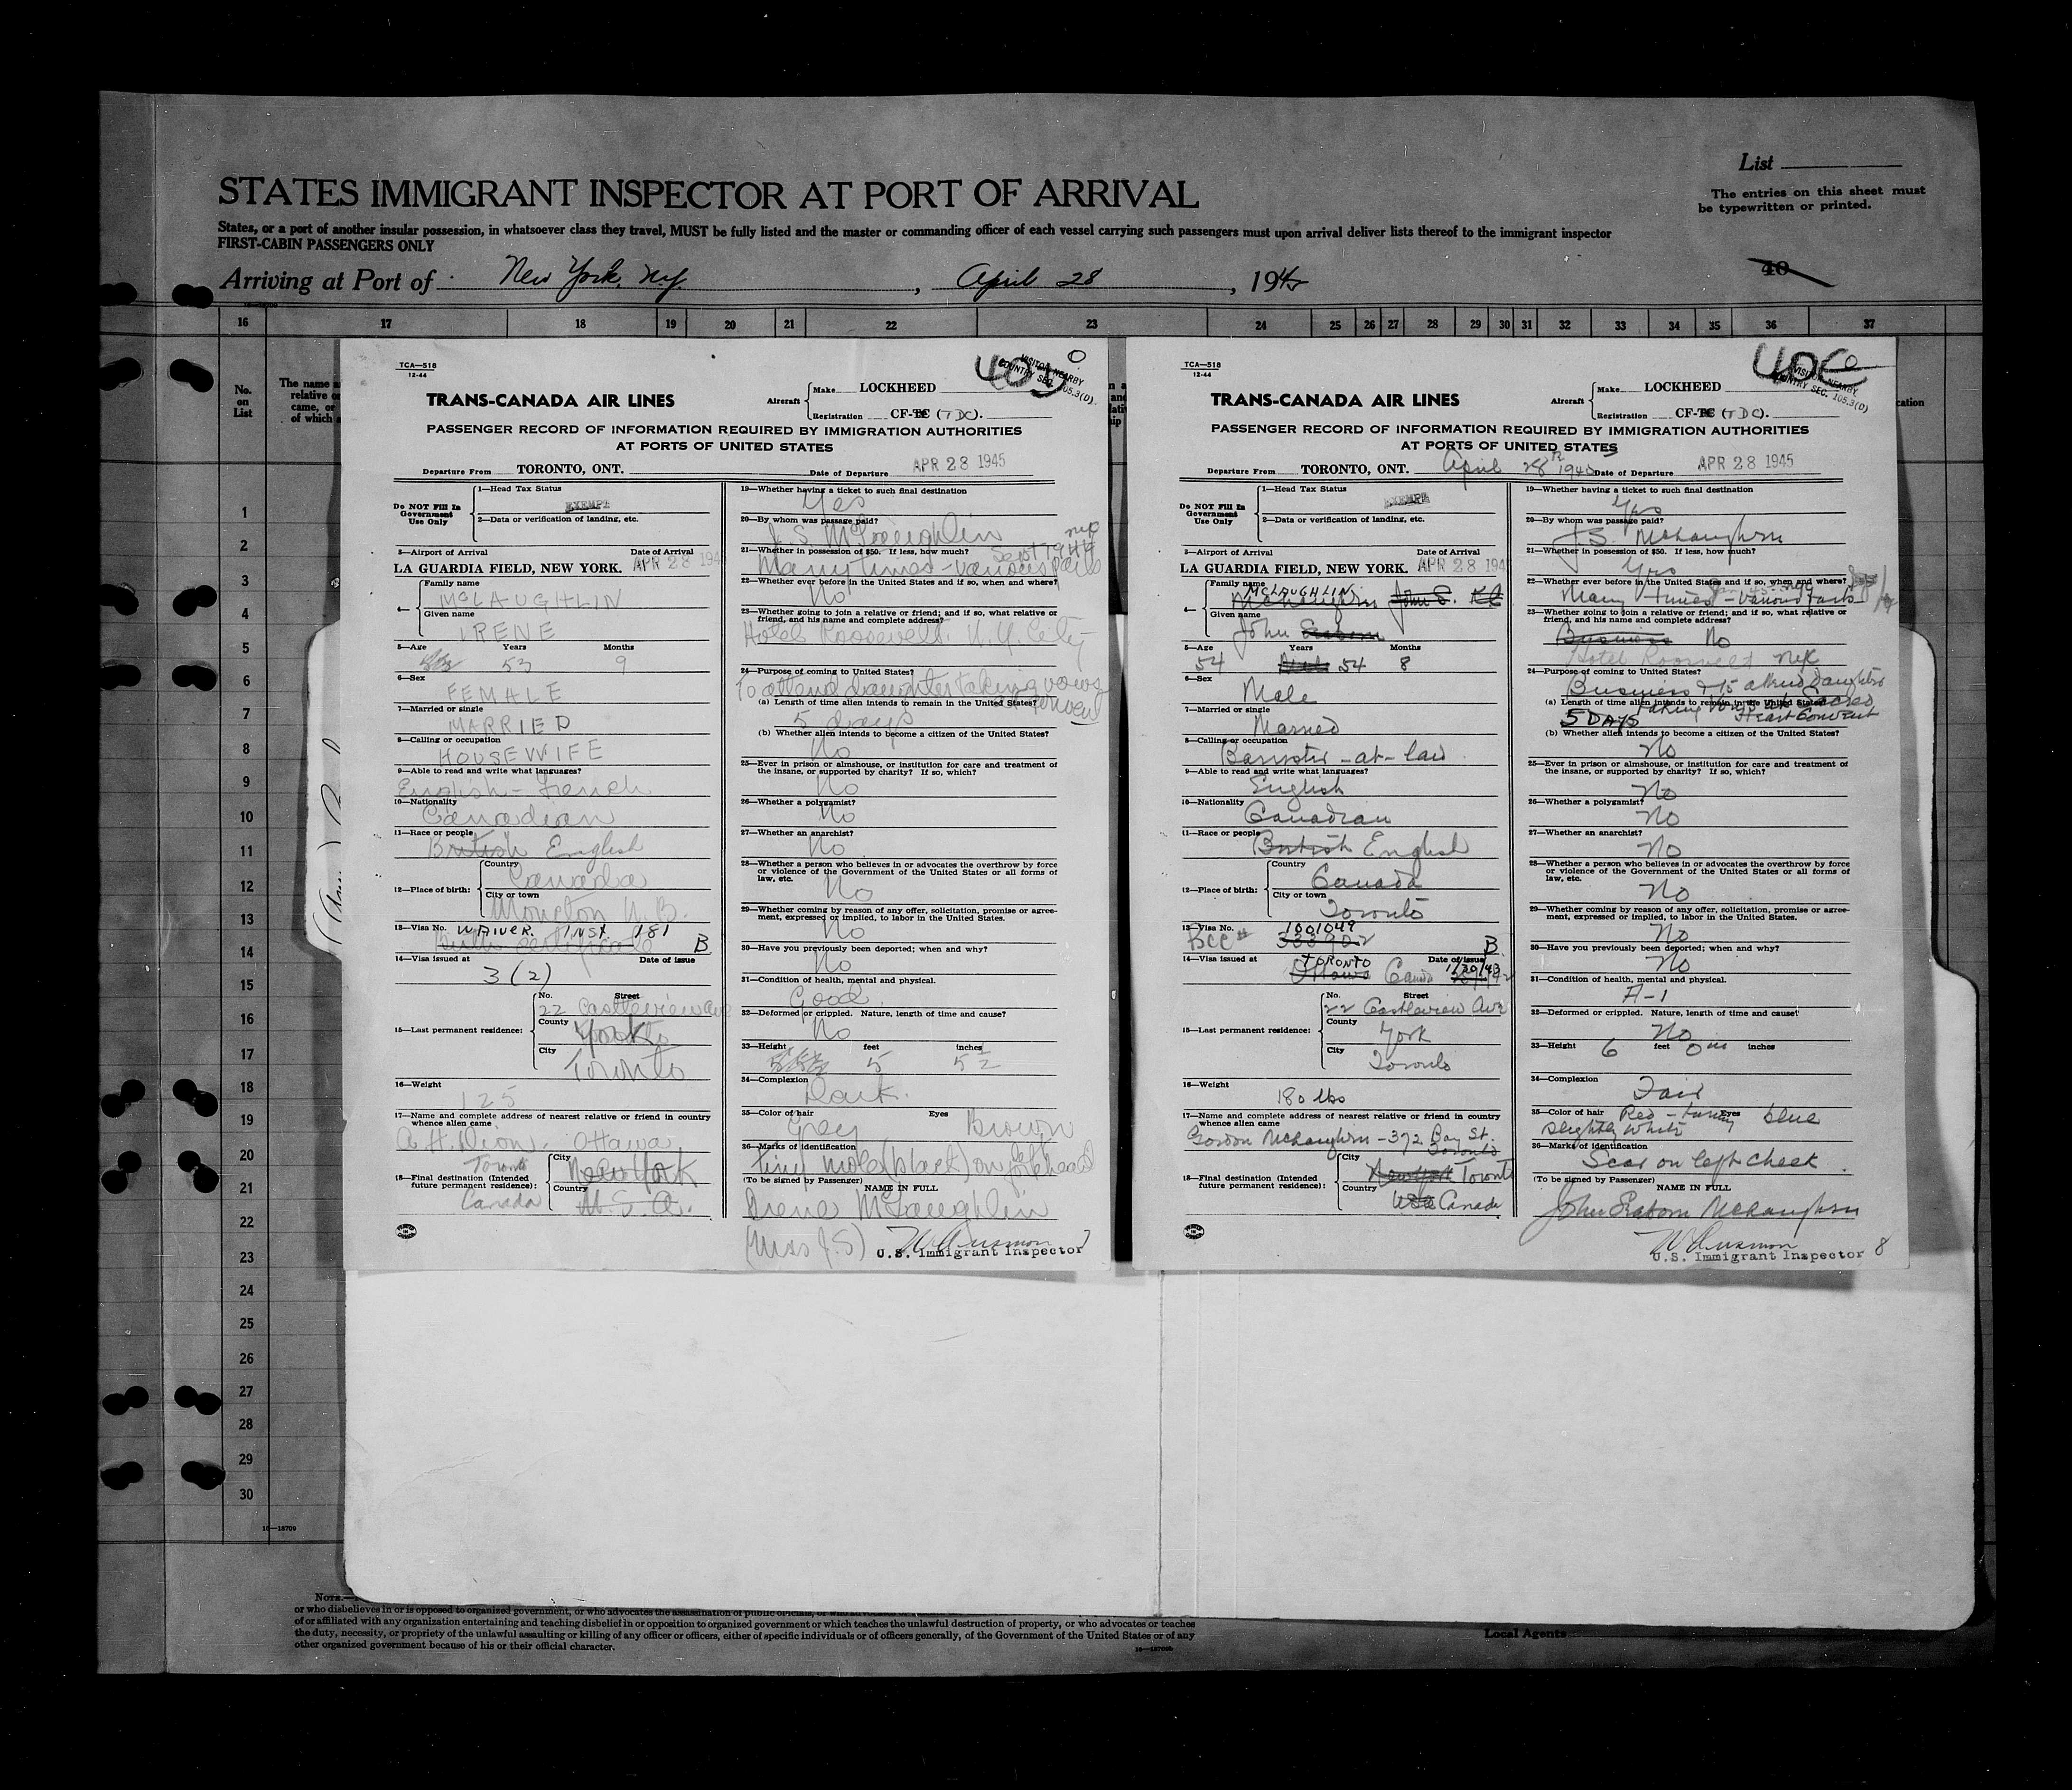 List
The entries on this sheet must
be typewritten or printed.
STATES IMMIGRANT INSPECTOR AT PORT OF ARRIVAL
States, or a port of another insular possession, in whatsoever class they travel, MUST be fully listed and the master or commanding officer of each vessel carrying such passengers must upon arrival deliver lists thereof to the immigrant inspector
FIRST-CABIN PASSENGERS ONLY
40
Arriving at Port of New York, N.Y. , April 28 , 1945
16 17 18 19 20 21 22 23 24 25 26 27 28 29 30 31 32 33 34 35 36 37
No.
on
List
The name a
relative o
came, or
of which a
1
2
3
4
5
6
7
8
9
10
11
12
13
14
15
16
17
18
19
20
21
22
23
24
25
26
27
28
29
30
TCA—518
12-44
VISITOR NEARBY
COUNTRY SEC. 105.3(D)
TRANS-CANADA AIR LINES
Aircraft
Make LOCKHEED
Registration CF-TC (TDC).
PASSENGER RECORD OF INFORMATION REQUIRED BY IMMIGRATION AUTHORITIES
AT PORTS OF UNITED STATES
Departure From TORONTO, ONT. Date of Departure APR 28 1945
Do NOT Fill In
Government
Use Only
1—Head Tax Status
EXEMPT
2—Data or verification of landing, etc.
3—Airport of Arrival Date of Arrival
LA GUARDIA FIELD, NEW YORK. APR 28 194
4—
Family name
McLAUGHLIN
Given name
IRENE
5—Age Years Months
53 9
6—Sex
FEMALE
7—Married or single
MARRIED
8—Calling or occupation
HOUSEWIFE
9—Able to read and write what languages?
English - French
10—Nationality
Canadian
11—Race or people
British English
12—Place of birth:
Country
Canada
City or town
Moncton N.B.
13—Visa No. WAIVER. INST. 181
Birth Certificate B
14—Visa issued at Date of issue
3 (2)
15—Last permanent residence:
No. Street
22 Castleview Ave
County
York
City
Toronto
16—Weight
125
17—Name and complete address of nearest relative or friend in country
whence alien came
A.H. Dion, Ottawa
18—Final destination (Intended
future permanent residence):
Toronto
Canada
City
New York
Country
U.S.A.
19—Whether having a ticket to such final destination
Yes
20—By whom was passage paid?
J. S. McLaughlin
21—Whether in possession of $50. If less, how much?
Sept 1944 NYC
Many times - various parts
22—Whether ever before in the United States and if so, when and where?
No
23—Whether going to join a relative or friend; and if so, what relative or
friend, and his name and complete address?
Hotel Roosevelt, N.Y. City
24—Purpose of coming to United States?
To attend daughter taking vows
(a) Length of time alien intends to remain in the United States?
5 days
(b) Whether alien intends to become a citizen of the United States?
No
25—Ever in prison or almshouse, or institution for care and treatment of
the insane, or supported by charity? If so, which?
No
26—Whether a polygamist?
No
27—Whether an anarchist?
No
28—Whether a person who believes in or advocates the overthrow by force
or violence of the Government of the United States or all forms of
law, etc.
No
29—Whether coming by reason of any offer, solicitation, promise or agree-
ment, expressed or implied, to labor in the United States.
No
30—Have you previously been deported; when and why?
No
31—Condition of health, mental and physical.
Good.
32—Deformed or crippled. Nature, length of time and cause?
No
33—Height feet inches
5 5½
34—Complexion
Dark.
35—Color of hair Eyes
Grey Brown
36—Marks of identification
tiny mole (black) on forehead
(To be signed by Passenger) NAME IN FULL
Irene McLaughlin
(Mrs J.S)
U.S. Immigrant Inspector 7
TCA—518
12-44
VISITOR NEARBY
COUNTRY SEC. 105.3(D)
TRANS-CANADA AIR LINES
Aircraft
Make LOCKHEED
Registration CF-TC (TDC).
PASSENGER RECORD OF INFORMATION REQUIRED BY IMMIGRATION AUTHORITIES
AT PORTS OF UNITED STATES
Departure From TORONTO, ONT. April 28th 1945 Date of Departure APR 28 1945
Do NOT Fill In
Government
Use Only
1—Head Tax Status
EXEMPT
2—Data or verification of landing, etc.
3—Airport of Arrival Date of Arrival
LA GUARDIA FIELD, NEW YORK. APR 28 194
4—
Family name
McLAUGHLIN
McLaughlin John S.
Given name
John
5—Age Years Months
54 54 8
6—Sex
Male
7—Married or single
Married
8—Calling or occupation
Barrister-at-law
9—Able to read and write what languages?
English
10—Nationality
Canadian
11—Race or people
British English
12—Place of birth:
Country
Canada
City or town
Toronto
13—Visa No. 1001049
BCC# 333902 B
14—Visa issued at TORONTO Date of issue 1/30/43
Ottawa Canada
15—Last permanent residence:
No. Street
22 Castleview Ave
County
York
City
Toronto
16—Weight
180 lbs
17—Name and complete address of nearest relative or friend in country
whence alien came
Gordon McLaughlin - 372 Bay St.
Toronto
18—Final destination (Intended
future permanent residence):
City
New York Toronto
Country
USA Canada
19—Whether having a ticket to such final destination
Yes
20—By whom was passage paid?
J.S. McLaughlin
21—Whether in possession of $50. If less, how much?
Yes
22—Whether ever before in the United States and if so, when and where?
Many times - various parts
23—Whether going to join a relative or friend; and if so, what relative or
friend, and his name and complete address?
Business No
Hotel Roosevelt NYC
24—Purpose of coming to United States?
Business & to attend daughter
(a) Length of time alien intends to remain in the United States?
taking vows at Sacred
5 DAYS Heart Convent
(b) Whether alien intends to become a citizen of the United States?
No
25—Ever in prison or almshouse, or institution for care and treatment of
the insane, or supported by charity? If so, which?
No
26—Whether a polygamist?
No
27—Whether an anarchist?
No
28—Whether a person who believes in or advocates the overthrow by force
or violence of the Government of the United States or all forms of
law, etc.
No
29—Whether coming by reason of any offer, solicitation, promise or agree-
ment, expressed or implied, to labor in the United States.
No
30—Have you previously been deported; when and why?
No
31—Condition of health, mental and physical.
A-1
32—Deformed or crippled. Nature, length of time and cause?
No
33—Height 6 feet 0 inches
34—Complexion
Fair
35—Color of hair Red - turning Eyes blue
slightly white
36—Marks of identification
Scar on left cheek
(To be signed by Passenger) NAME IN FULL
John McLaughlin
U.S. Immigrant Inspector 8
NOTE.—
or who disbelieves in or is opposed to organized government, or who advocates the assassination of public officials, or who advocates
of or affiliated with any organization entertaining and teaching disbelief in or opposition to organized government or which teaches the unlawful destruction of property, or who advocates or teaches
the duty, necessity, or propriety of the unlawful assaulting or killing of any officer or officers, either of specific individuals or of officers generally, of the Government of the United States or of any
other organized government because of his or their official character.
Local Agents
16—18709